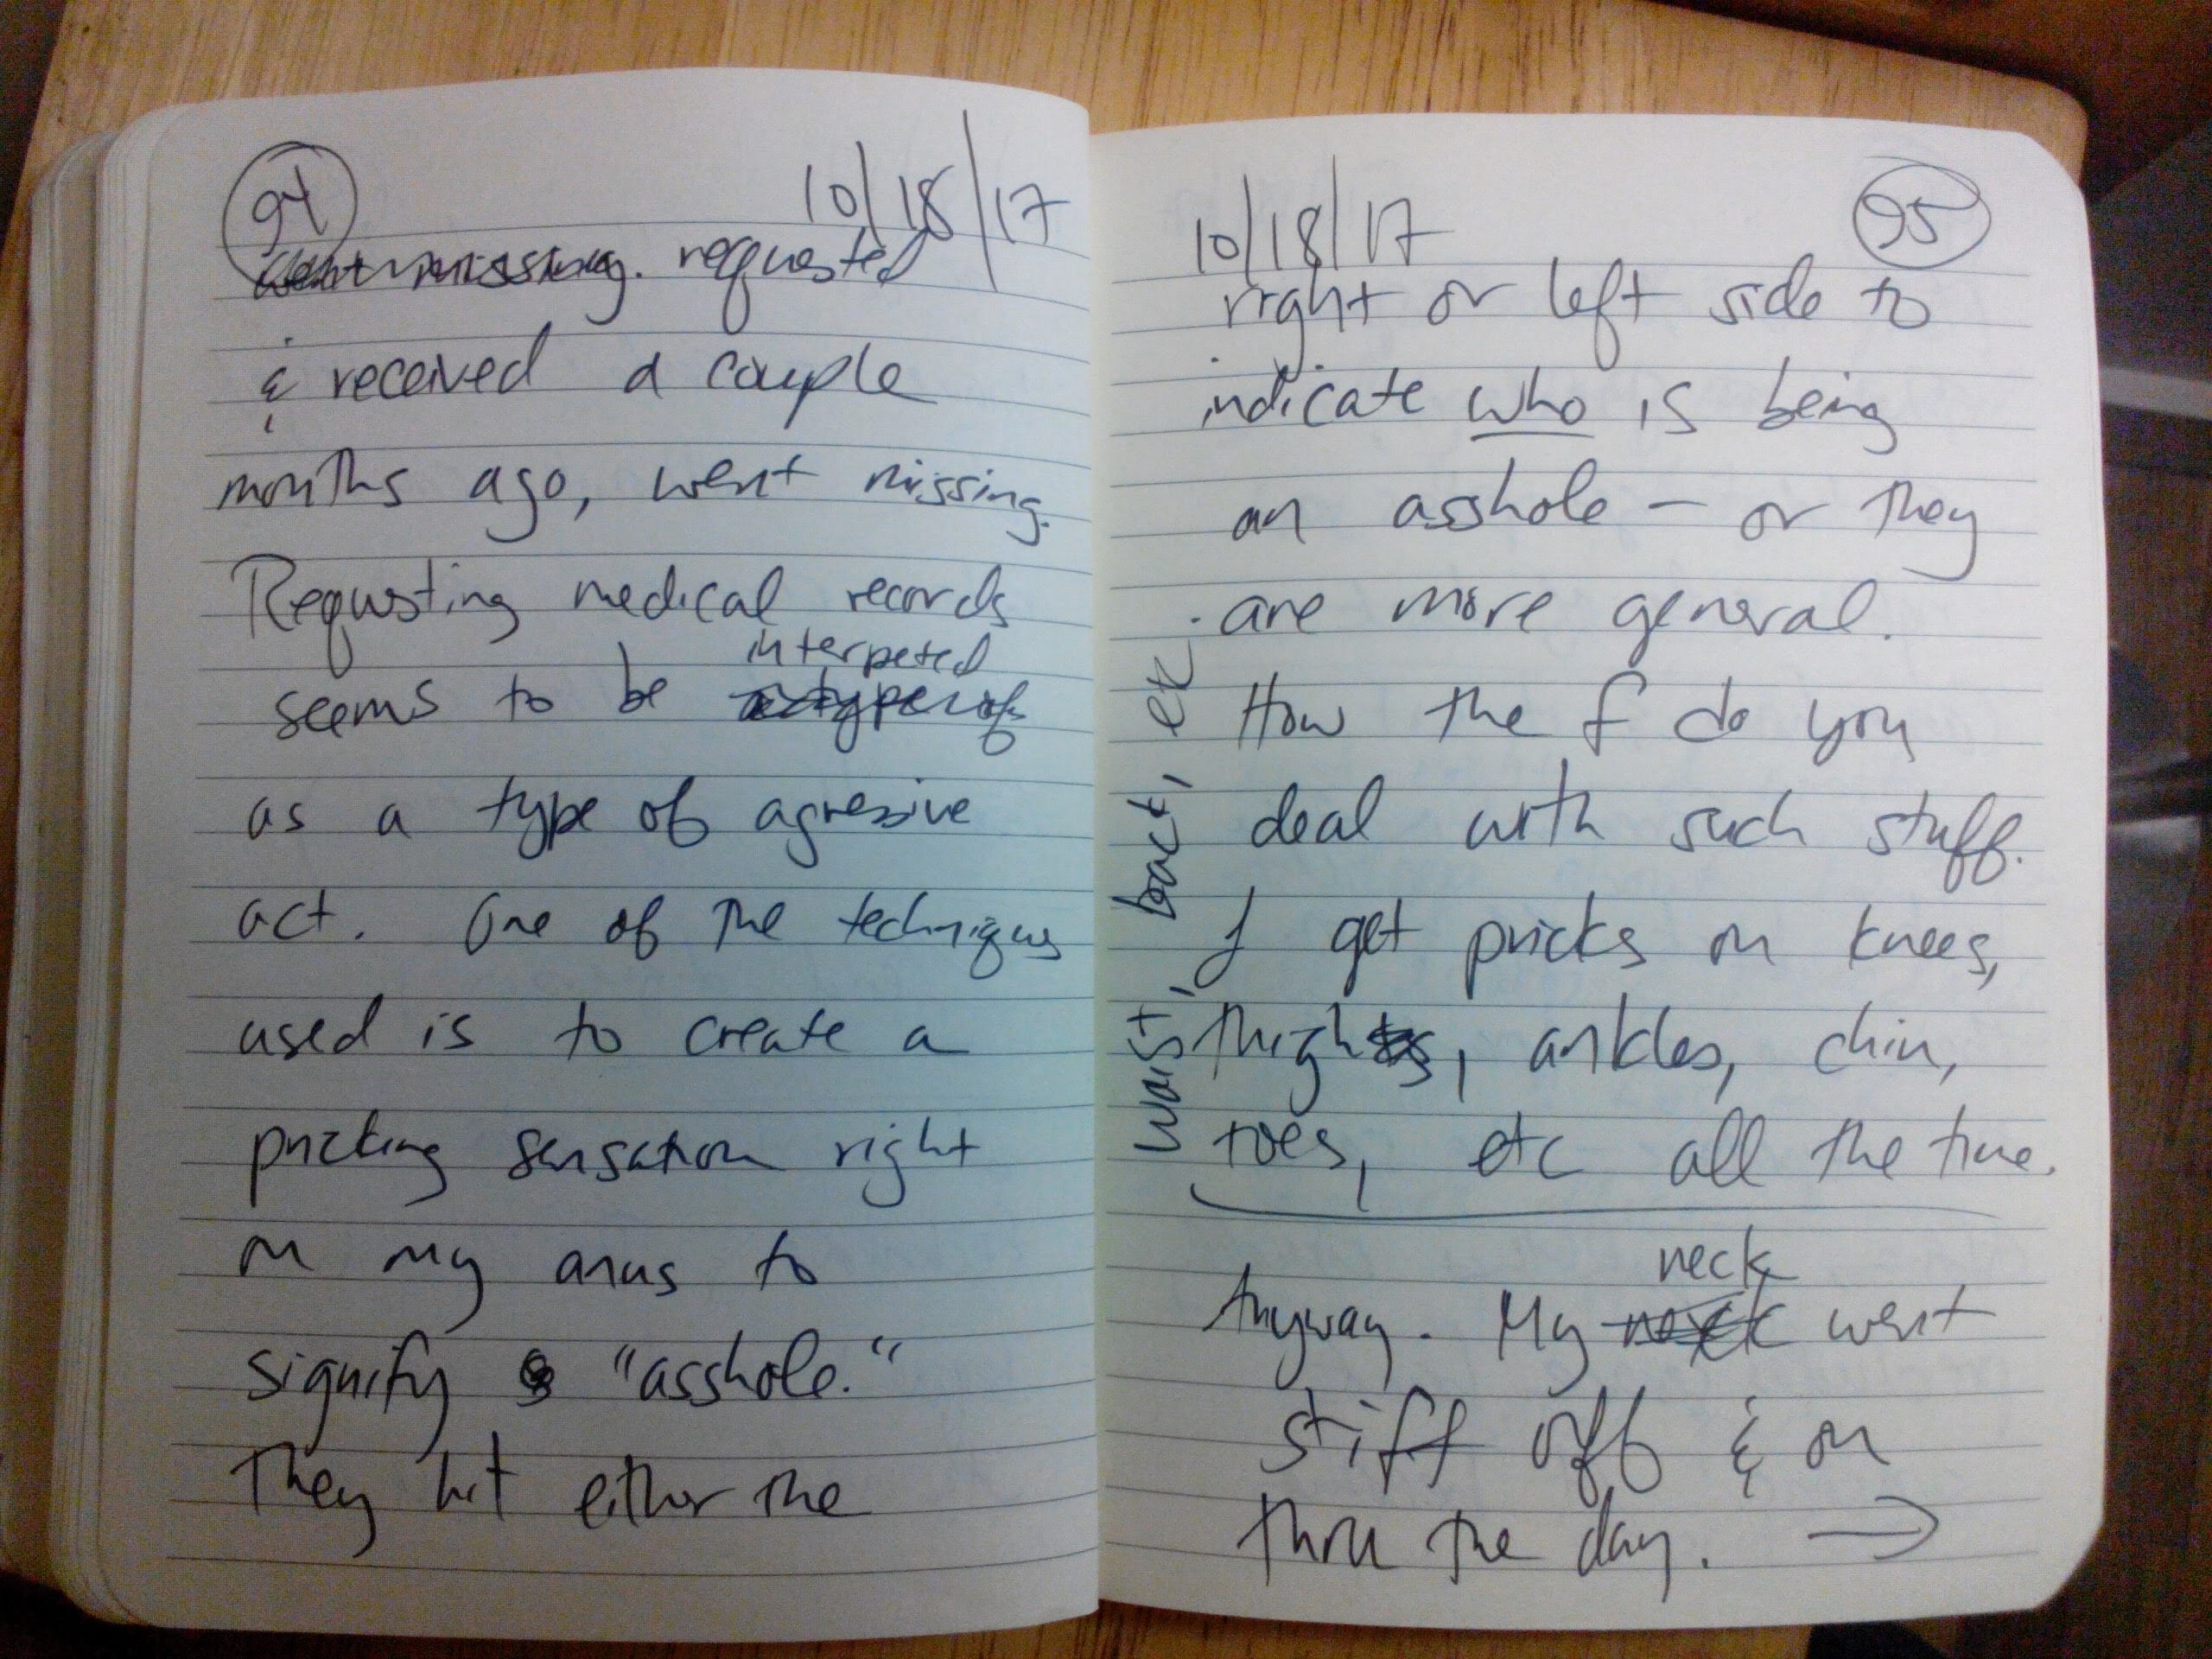 94
10/18/17
went missing. requested
& received a couple
months ago, went missing.
Requesting medical records
interpeted
seems to be a type of
as a type of agressive
act. One of the techniques
used is to create a
pricking sensation right
on my anus to
signify "asshole."
They hit either the
10/18/17
95
right or left side to
indicate who is being
an asshole – or they
are more general.
How the f do you
deal with such stuff.
I get pricks on knees,
thighs, ankles, chin,
toes, etc all the time.
waist, back, etc.
neck
Anyway. My neck went
stiff off & on
thru the day. →